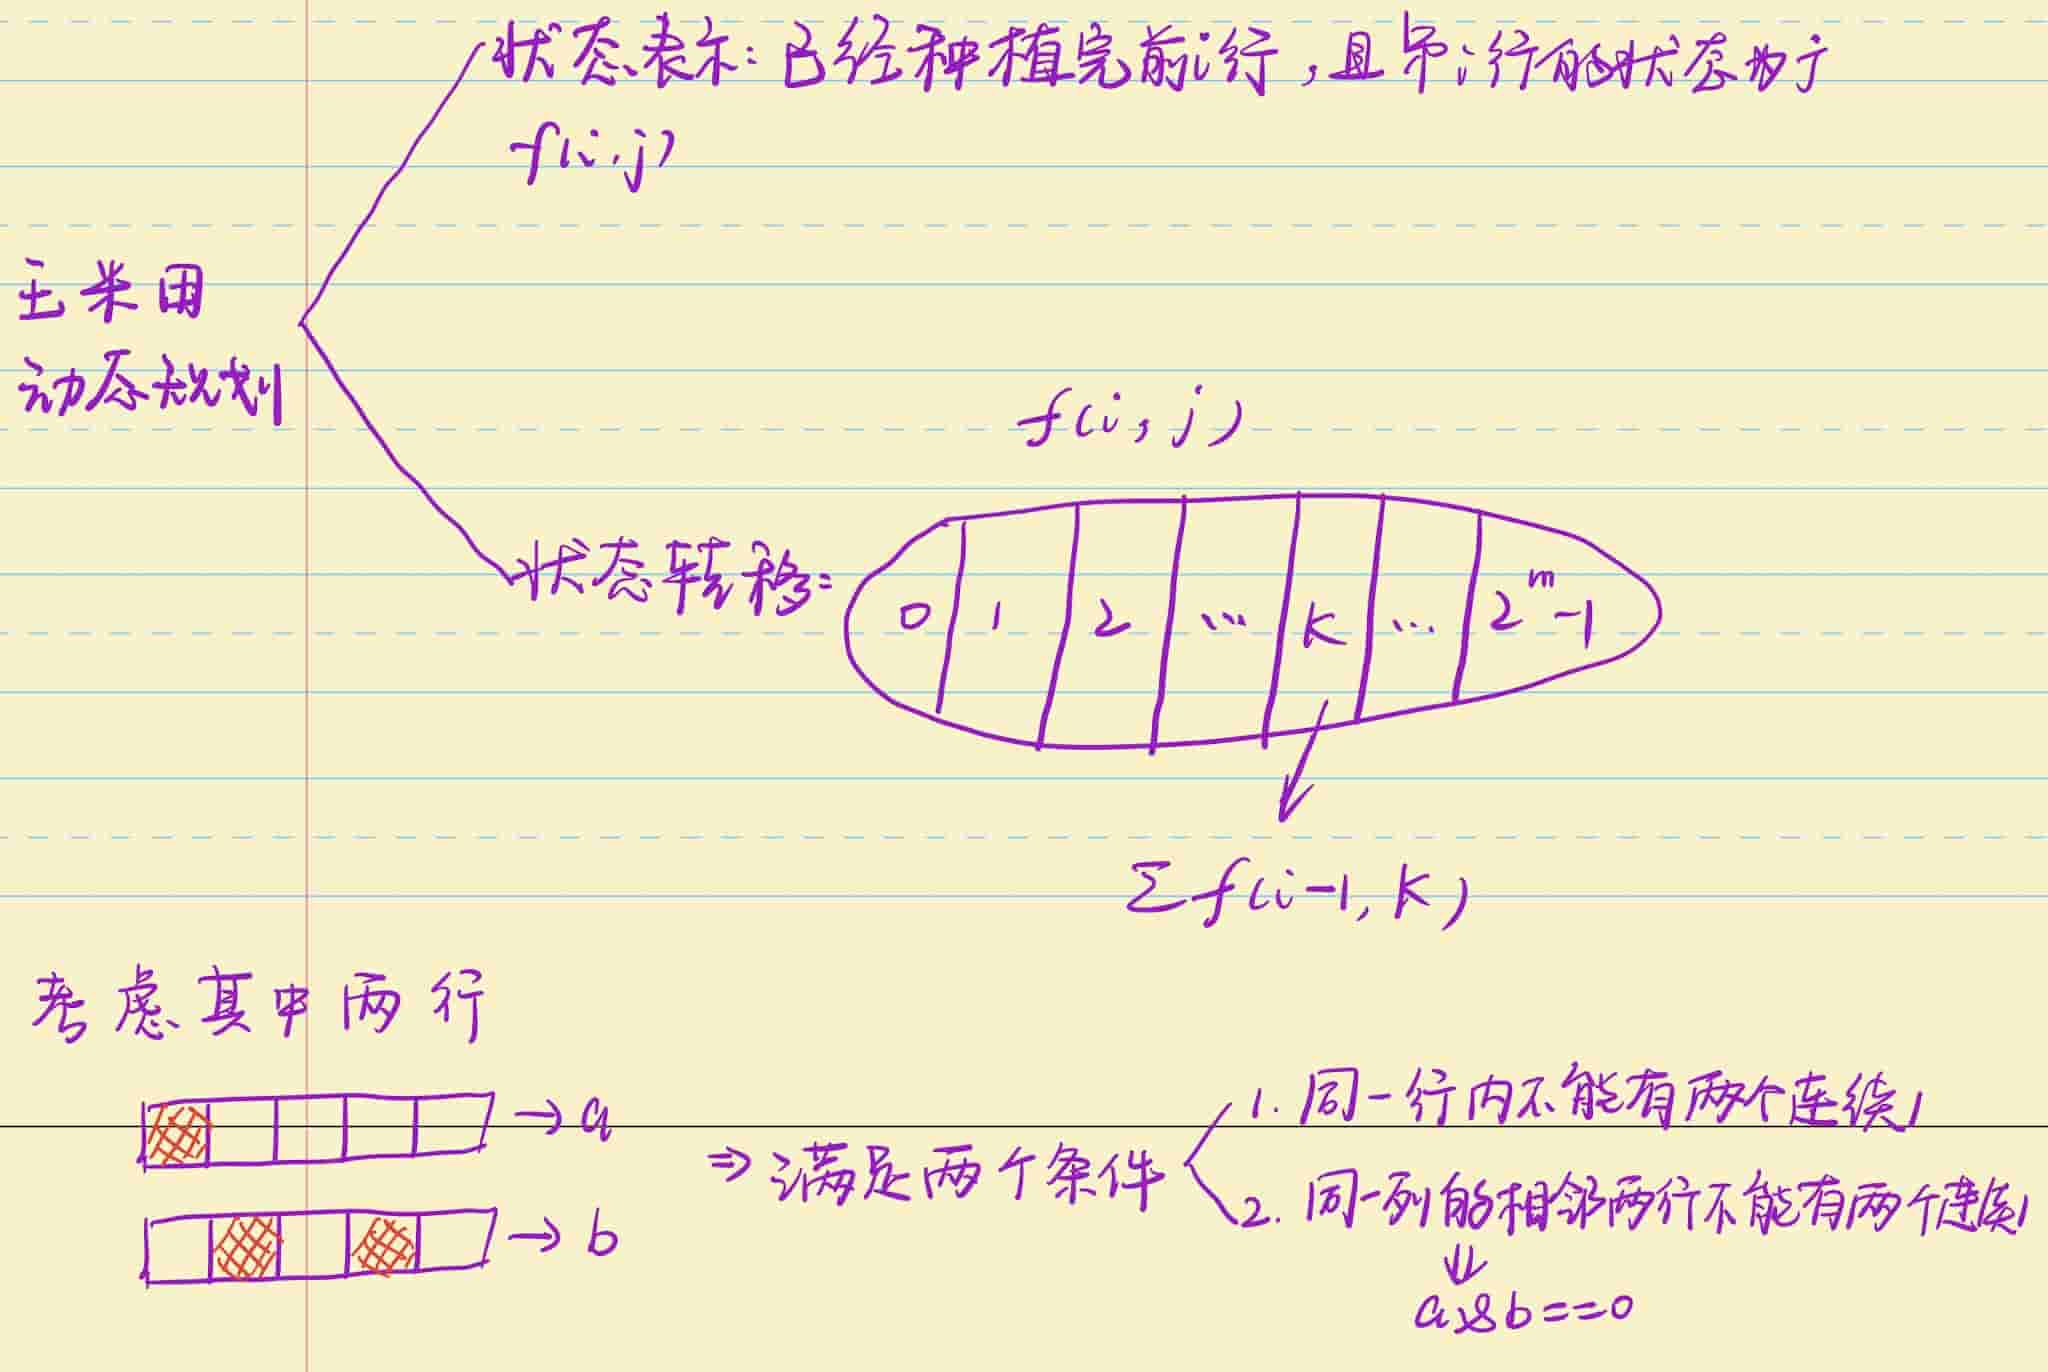 状态表示：已经种植完前i行，且第i行的状态为j
f(i,j)
玉米田
动态规划
f(i,j)
状态转移：
0 1 2 … k … 2^m-1
Σf(i-1,k)
考虑其中两行
→a
→b
⇒满足两个条件
1. 同一行内不能有两个连续1
2. 同一列的相邻两行不能有两个连续1
⇓
a&b==0